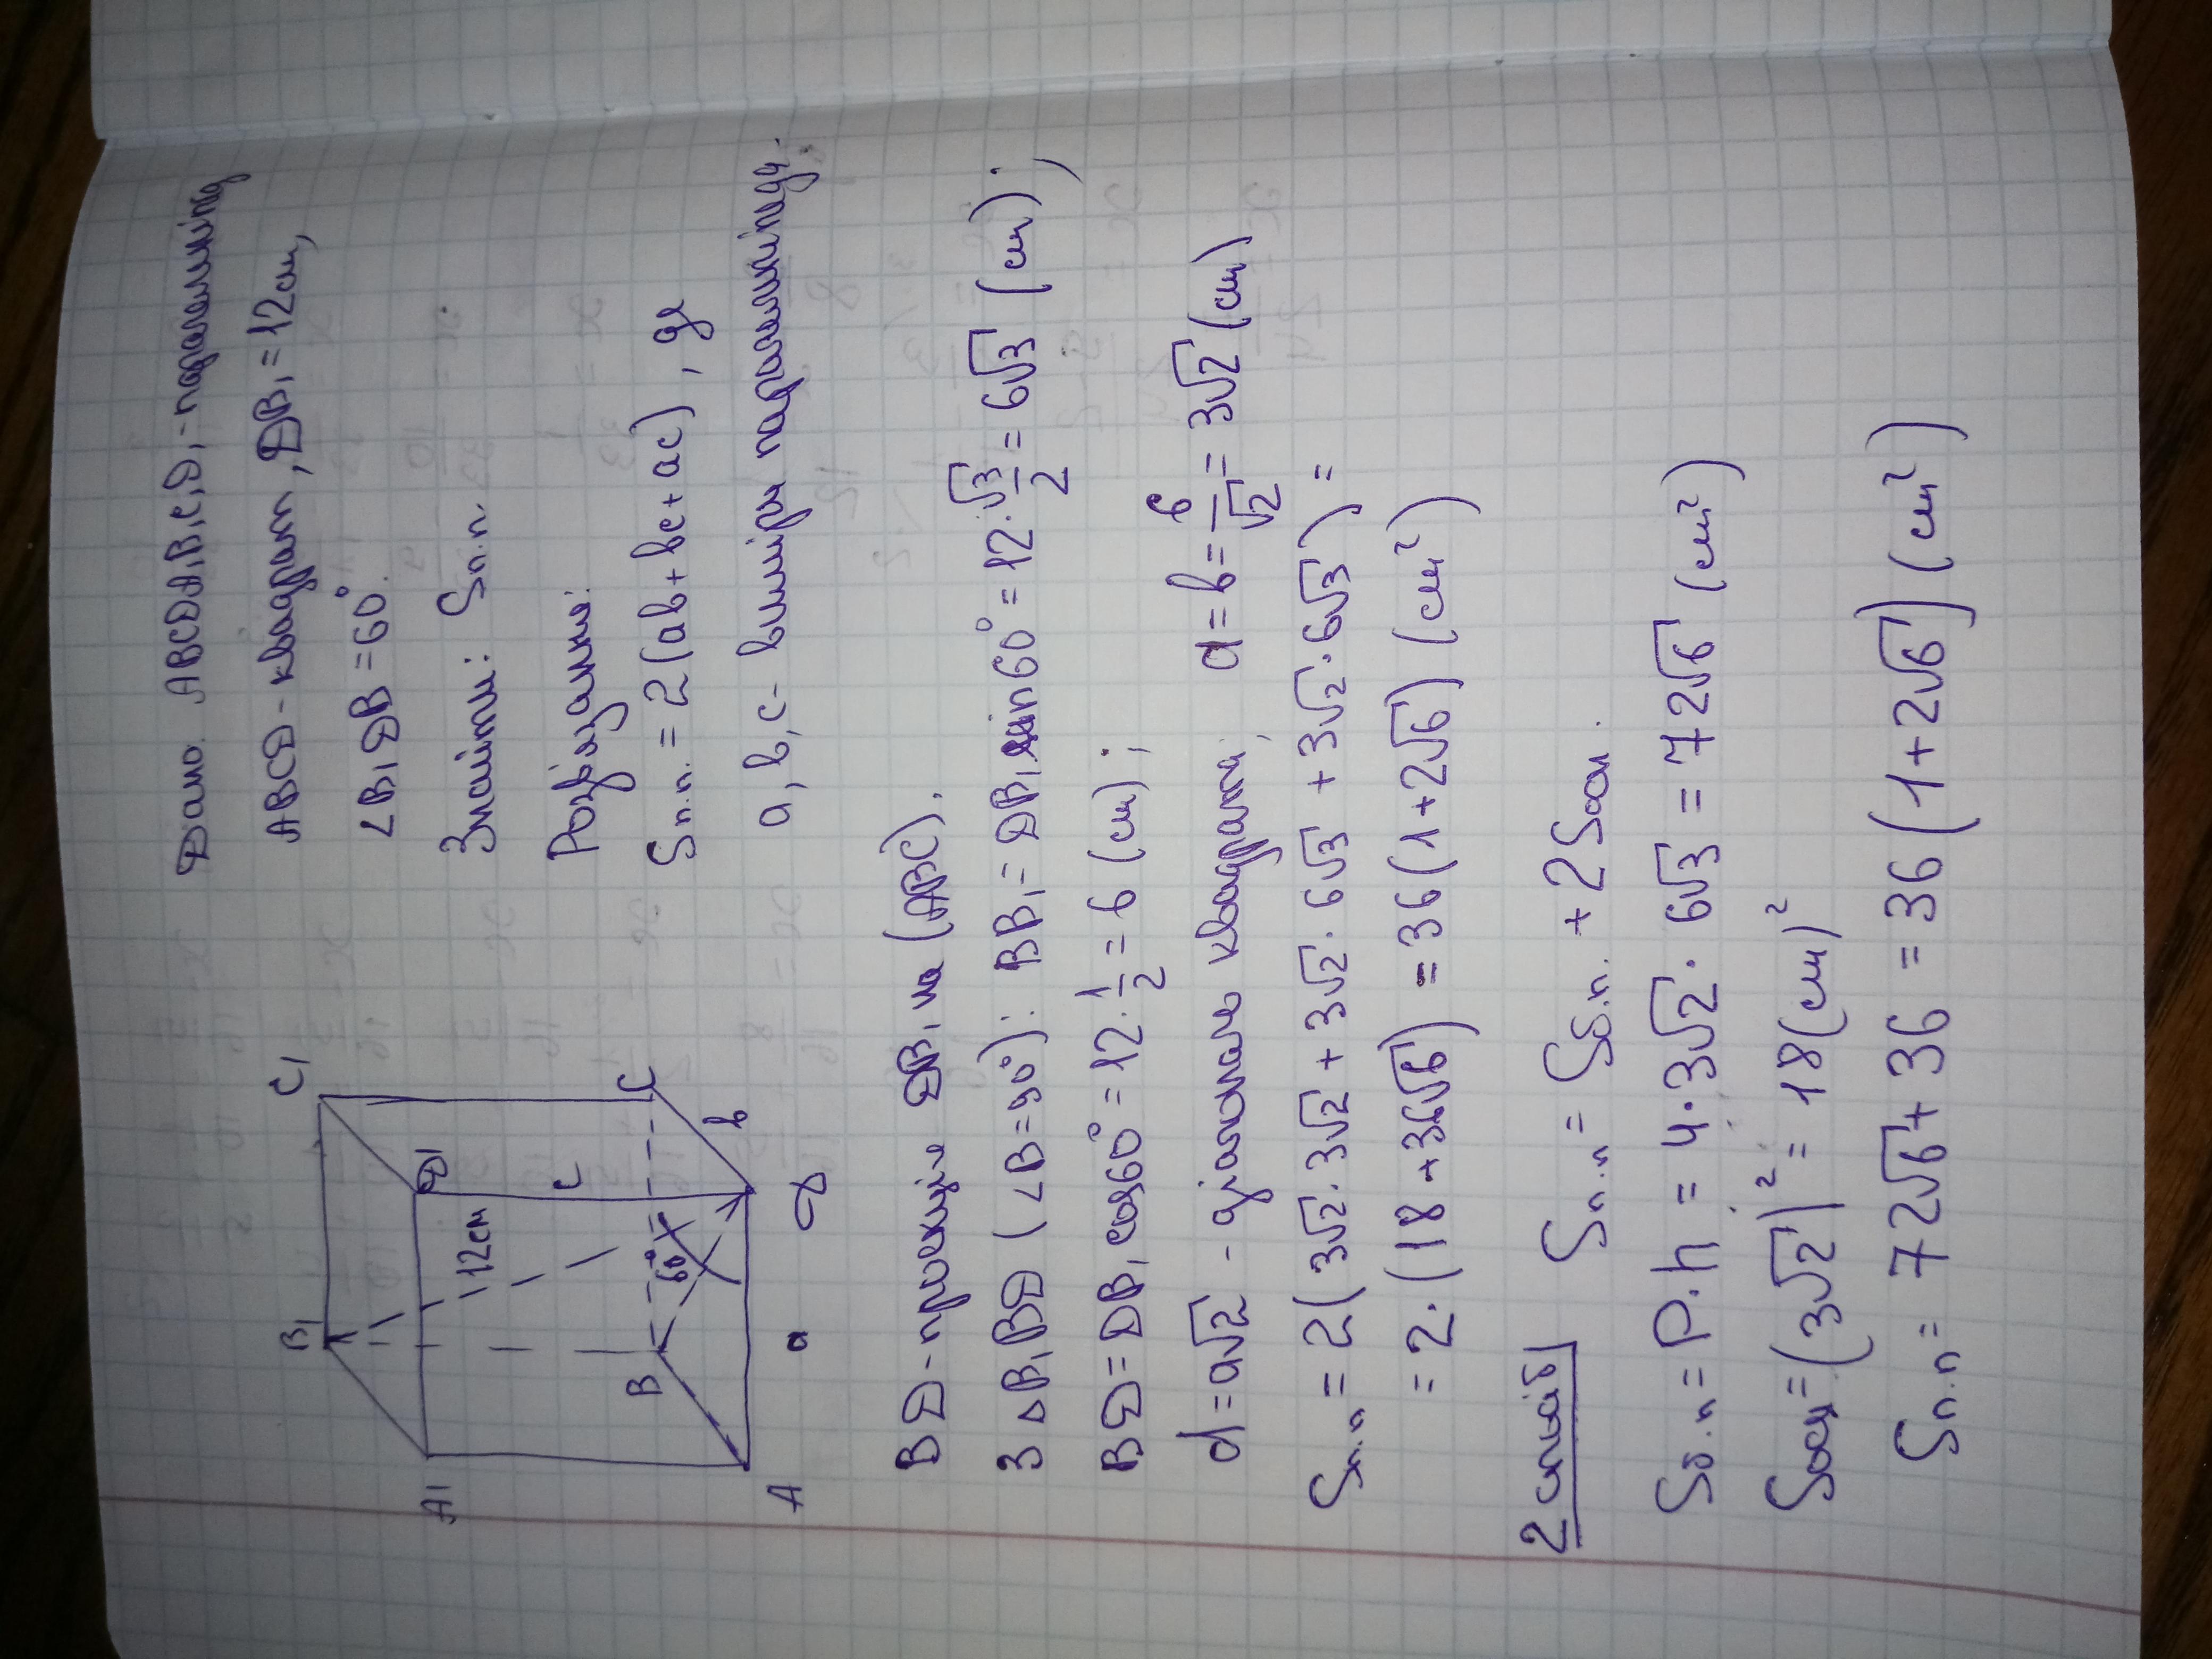 Дано: ABCDA₁B₁C₁D₁ - паралелепіпед
ABCD - квадрат, DB₁ = 12см,
∠B₁DB = 60°.
Знайти: Sп.п.
Розв'язання:
Sп.п. = 2(ab + bc + ac), де
a, b, c - виміри паралелепіпеда.
B₁
C₁
A₁
D₁
12см
c
60°
B
C
b
A
a
D
BD - проекція DB₁ на (ABC).
З △B₁BD (∠B = 90°): BB₁ = DB₁ sin60° = 12·√3/2 = 6√3 (см);
BD = DB₁ cos60° = 12·1/2 = 6 (см);
d = a√2 - діагональ квадрата; a = b = 6/√2 = 3√2 (см)
Sп.п = 2(3√2·3√2 + 3√2·6√3 + 3√2·6√3) =
= 2·(18 + 36√6) = 36(1+2√6) (см²)
2 спосіб Sп.п = Sб.п. + 2Sосн.
Sб.п = P·h = 4·3√2·6√3 = 72√6 (см²)
Sосн = (3√2)² = 18 (см)²
Sп.п = 72√6 + 36 = 36(1+2√6) (см²)